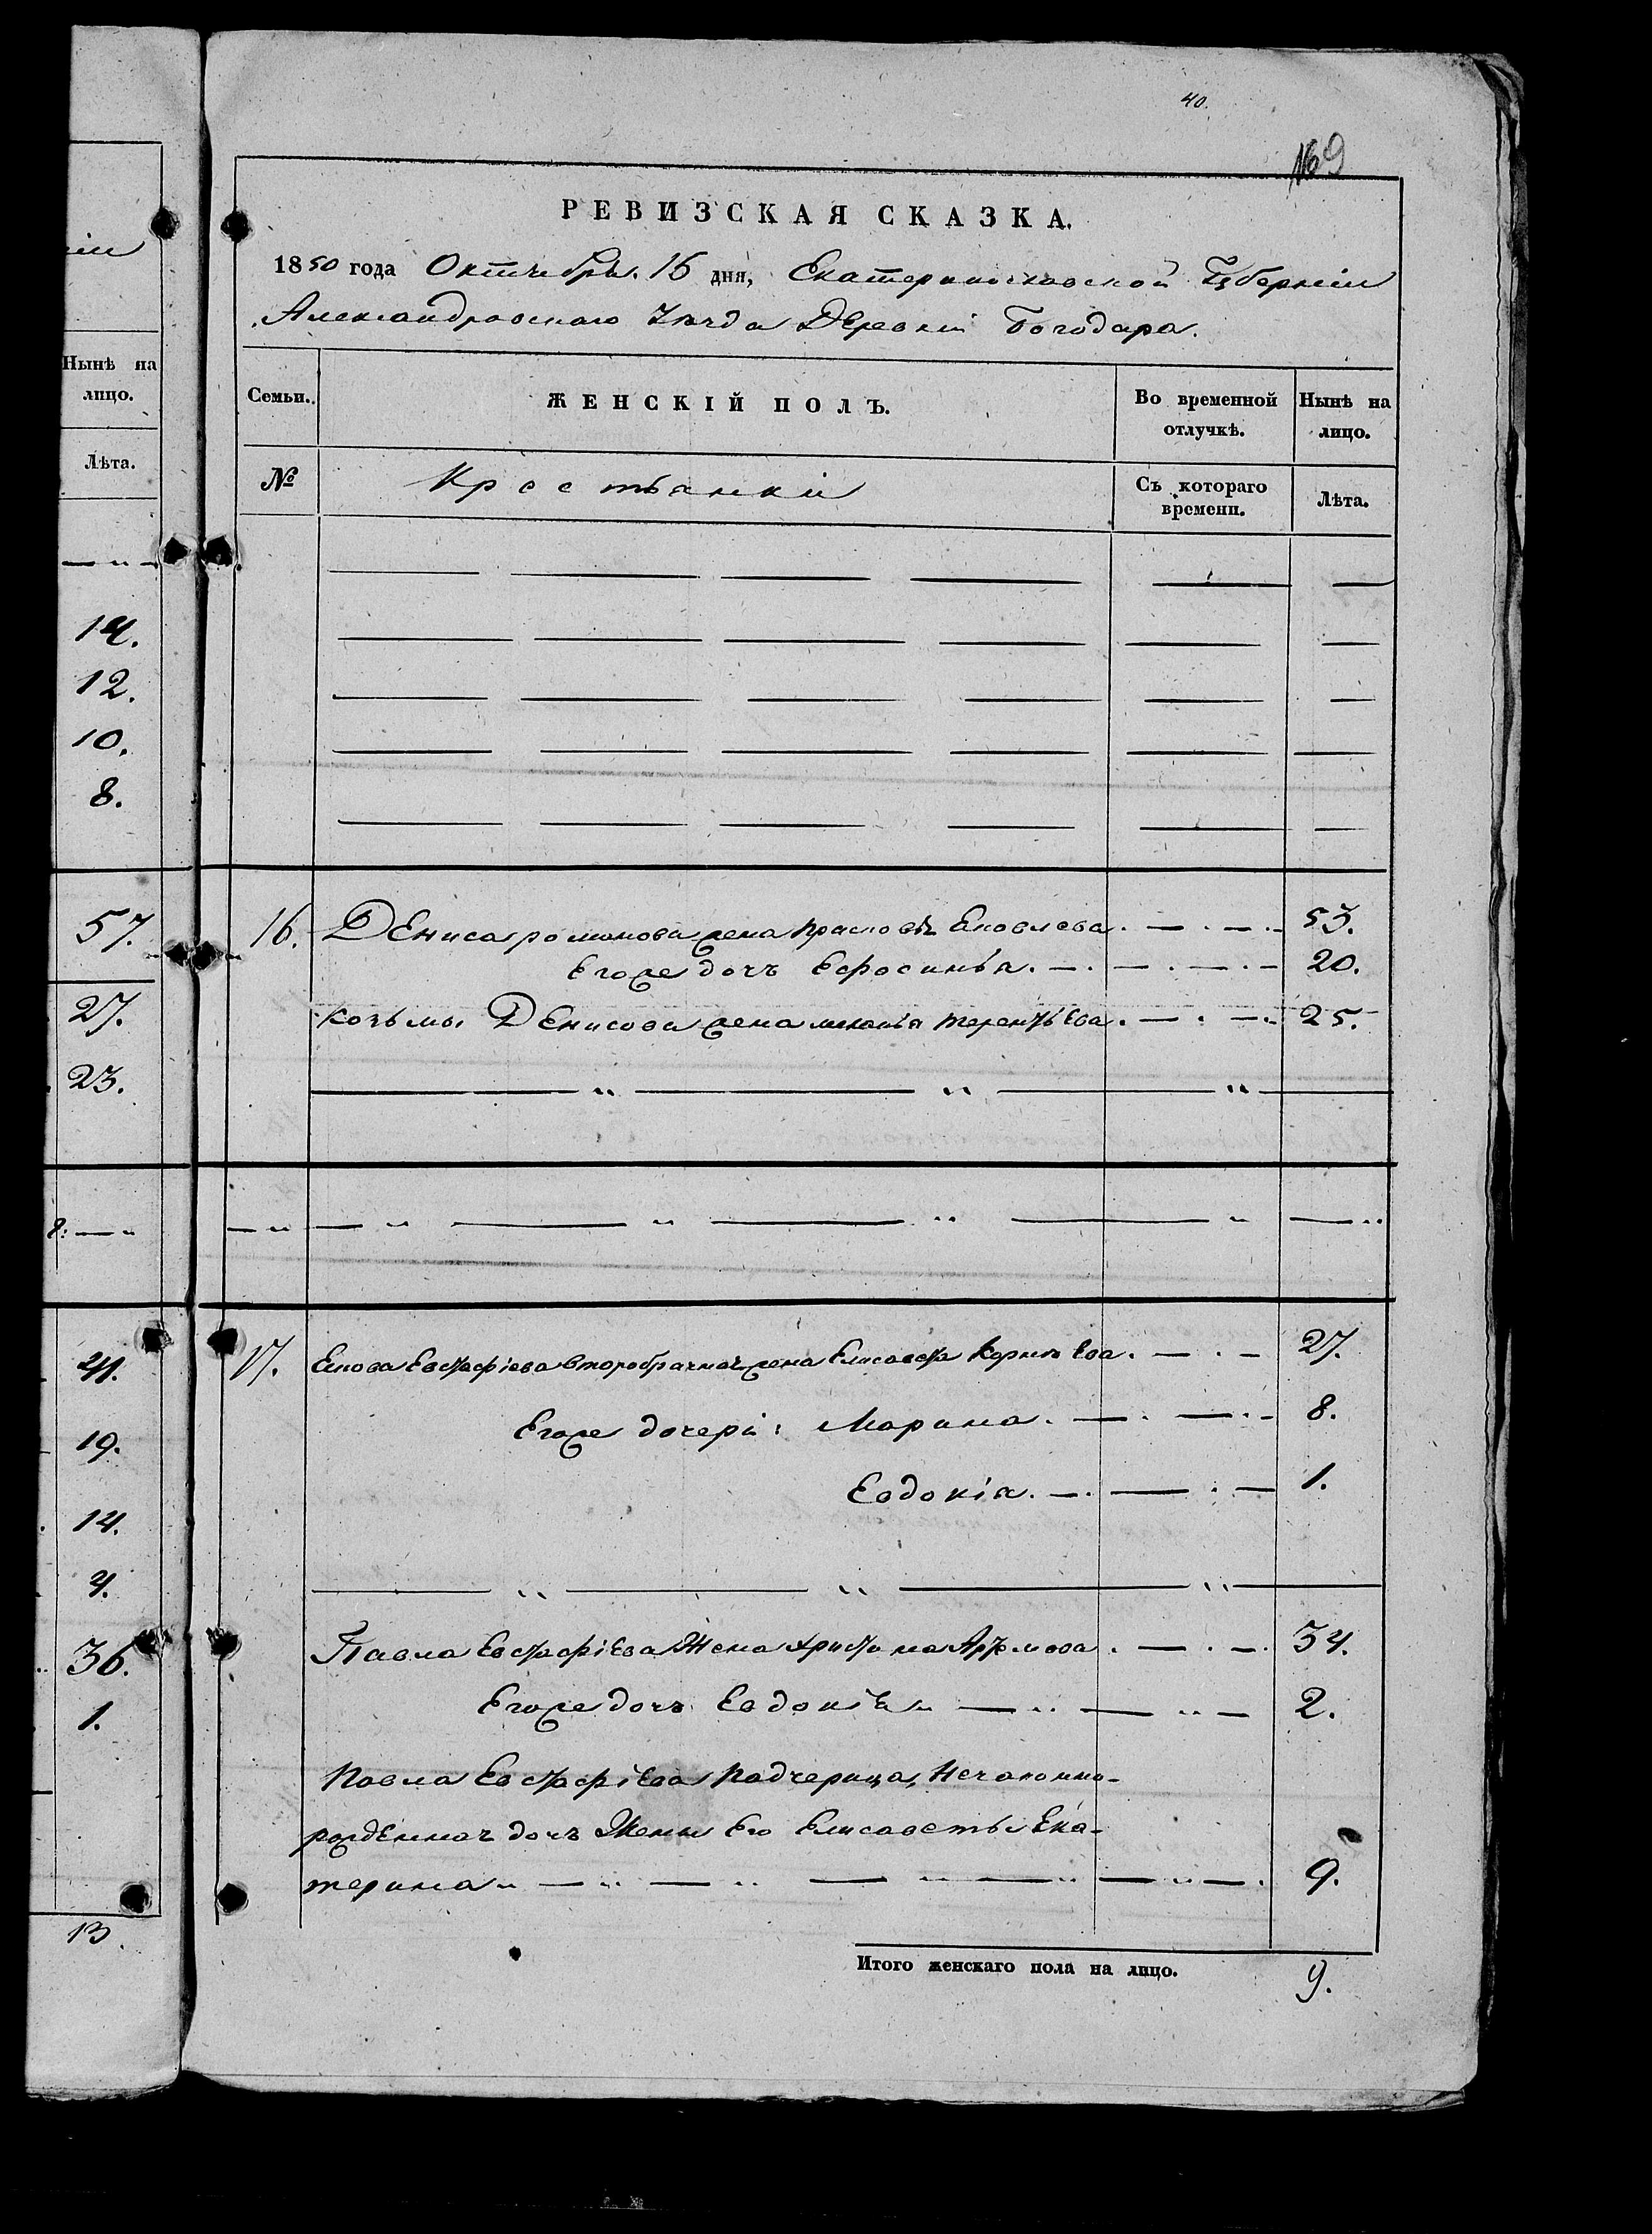 40.
№9
РЕВИЗСКАЯ СКАЗКА.
1850 года Октября 16 дня, Екатеринославской Губерніи
Александровскаго Уѣзда Деревни Богодара.
Семьи. ЖЕНСКІЙ ПОЛЪ. Во временной отлучкѣ. Нынѣ на лицо.
№ Крестьянки Съ котораго времени. Лѣта.
16. Дениса романова жена Ековлева. 53.
Егоже дочъ Ефросинья. 20.
козьмы Денисова жена терентьева. 25.
17. Евстафіева второбрачная жена Елисавета Корнѣева. 27.
Егоже дочери: Марина. 8.
Евдокія. 1.
Павла Евстафіева Жена христина 34.
Егоже дочъ Евдокія 2.
Павла Евстафіева Падчерица, Незаконно-
рожденная дочъ Жены Его Елисаветы Ека-
терина 9.
Итого женскаго пола на лицо. 9.
ніи
Нынѣ на
лицо.
Лѣта.
14.
12.
10.
8.
57.
27.
23.
41.
19.
14.
4.
36.
1.
13.